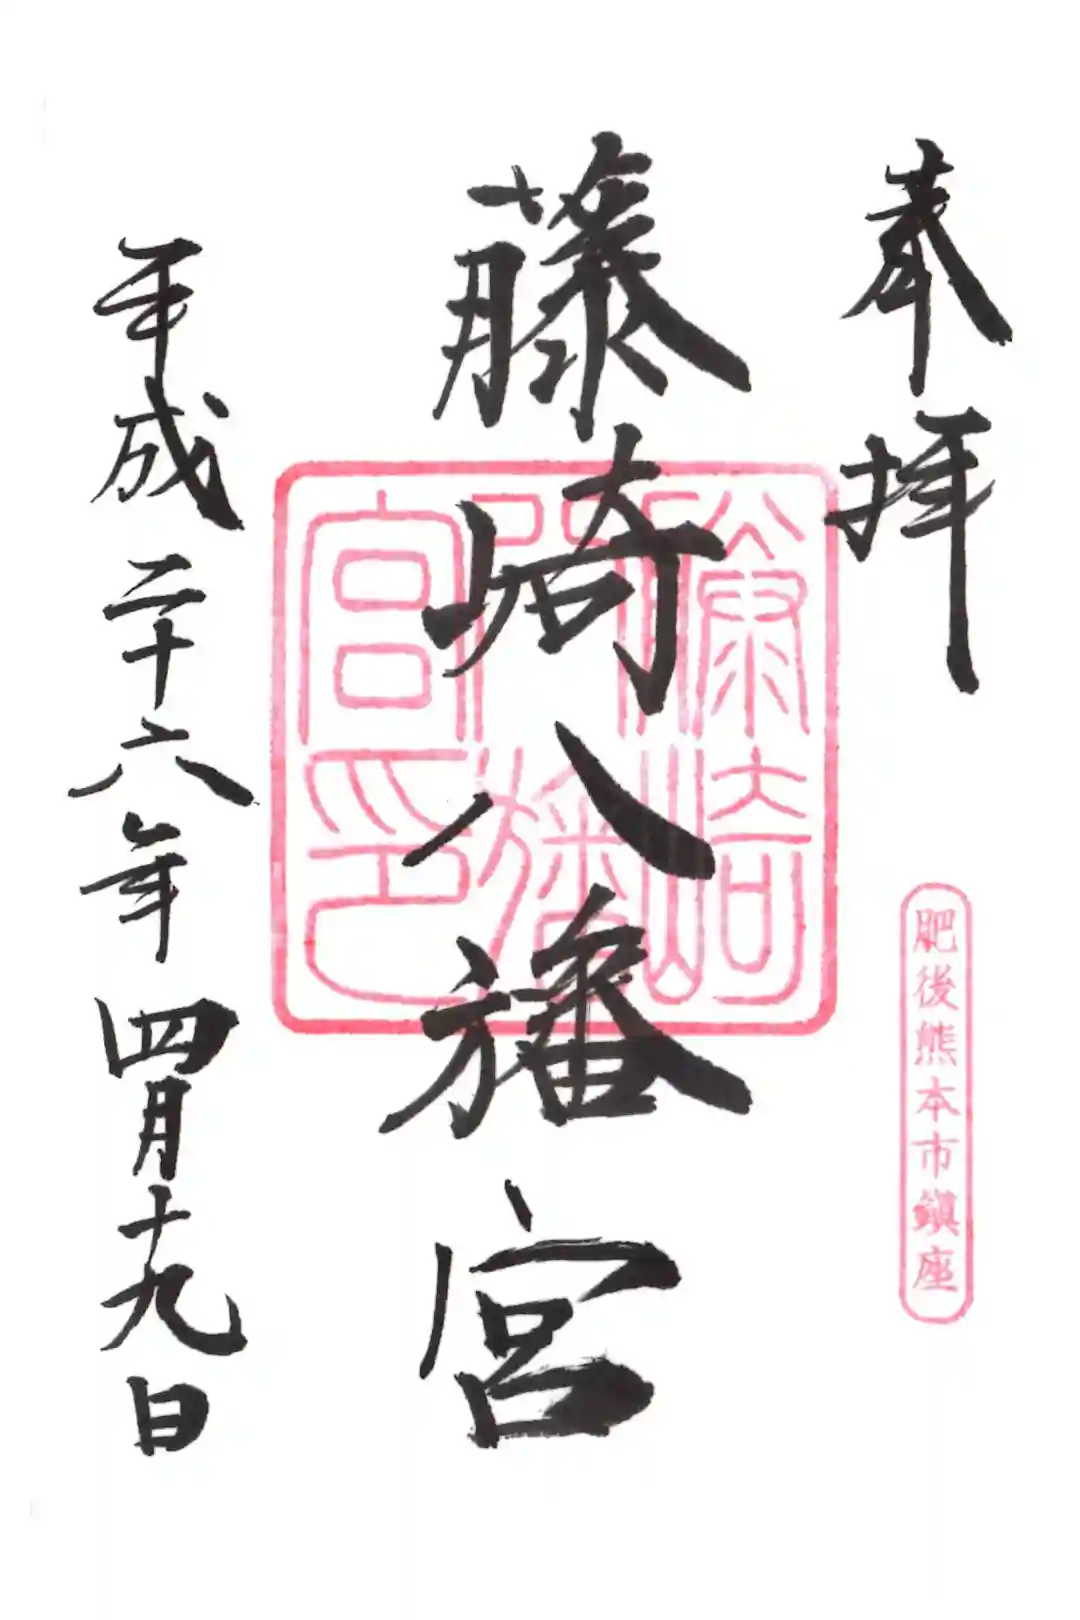 奉拝
肥後熊本市鎮座
藤崎八旛宮
藤崎八旛宮印
平成二十六年四月十九日